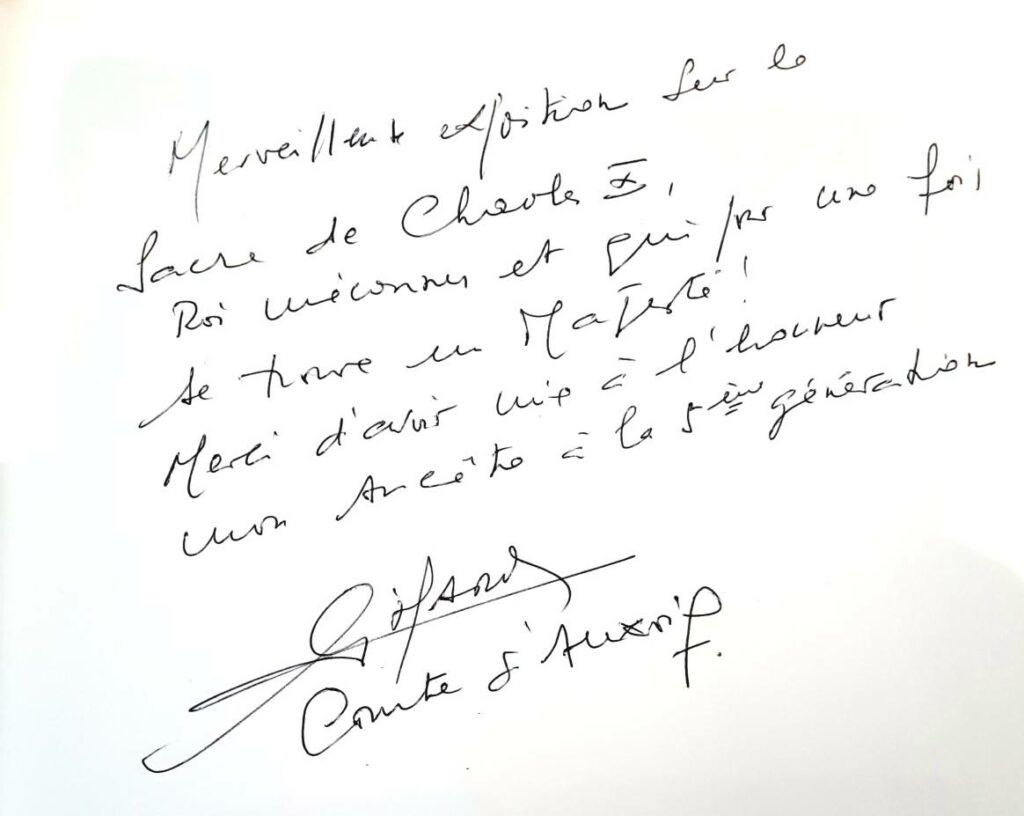 Merveilleuse exposition sur le
Sacre de Charles X,
Roi méconnu et qui pour une fois
se trouve en Majesté !
Merci d'avoir mis à l'honneur
mon Ancêtre à la 5ème génération
Comte d'